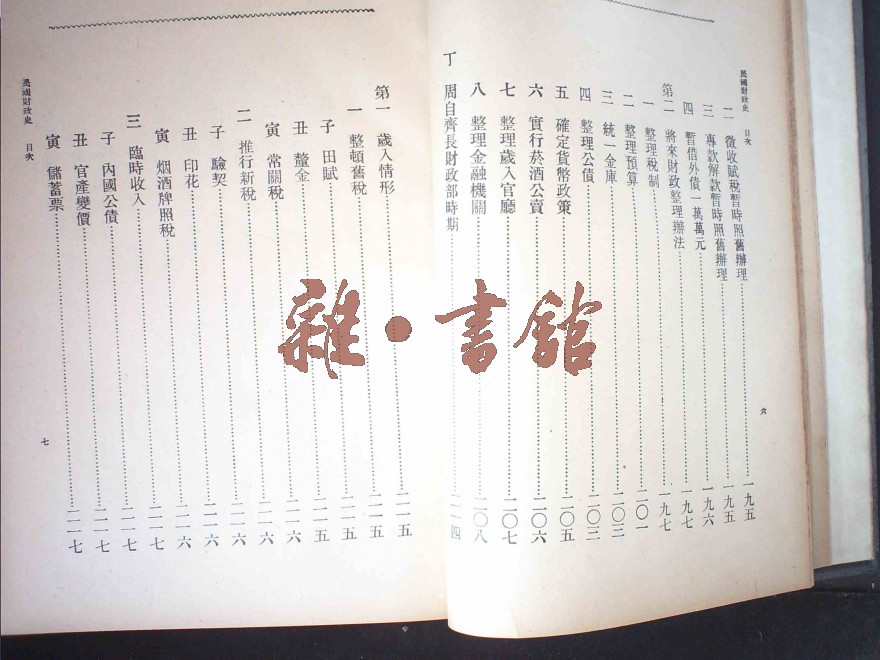 民國財政史 目次
二 徵收賦稅暫時照舊辦理……一九五
三 專款解款暫時照舊辦理……一九五
四 暫借外債一萬萬元……一九六
第二 將來財政整理辦法……一九七
一 整理稅制……一九七
二 整理預算……二〇一
三 統一金庫……二〇三
四 整理公債……二〇三
五 確定貨幣政策……二〇五
六 實行菸酒公賣……二〇六
七 整理歲入官廳……二〇七
八 整理金融機關……二〇八
丁 周自齊長財政部時期……二一四
六
第一 歲入情形……二一五
一 整頓舊稅……二一五
子 田賦……二一五
丑 釐金……二一五
寅 常關稅……二一六
二 推行新稅……二一六
子 驗契……二一六
丑 印花……二一六
寅 烟酒牌照稅……二一六
三 臨時收入……二一七
子 內國公債……二一七
丑 官產變價……二一七
寅 儲蓄票……二一七
民國財政史 目次
七
雜·書館